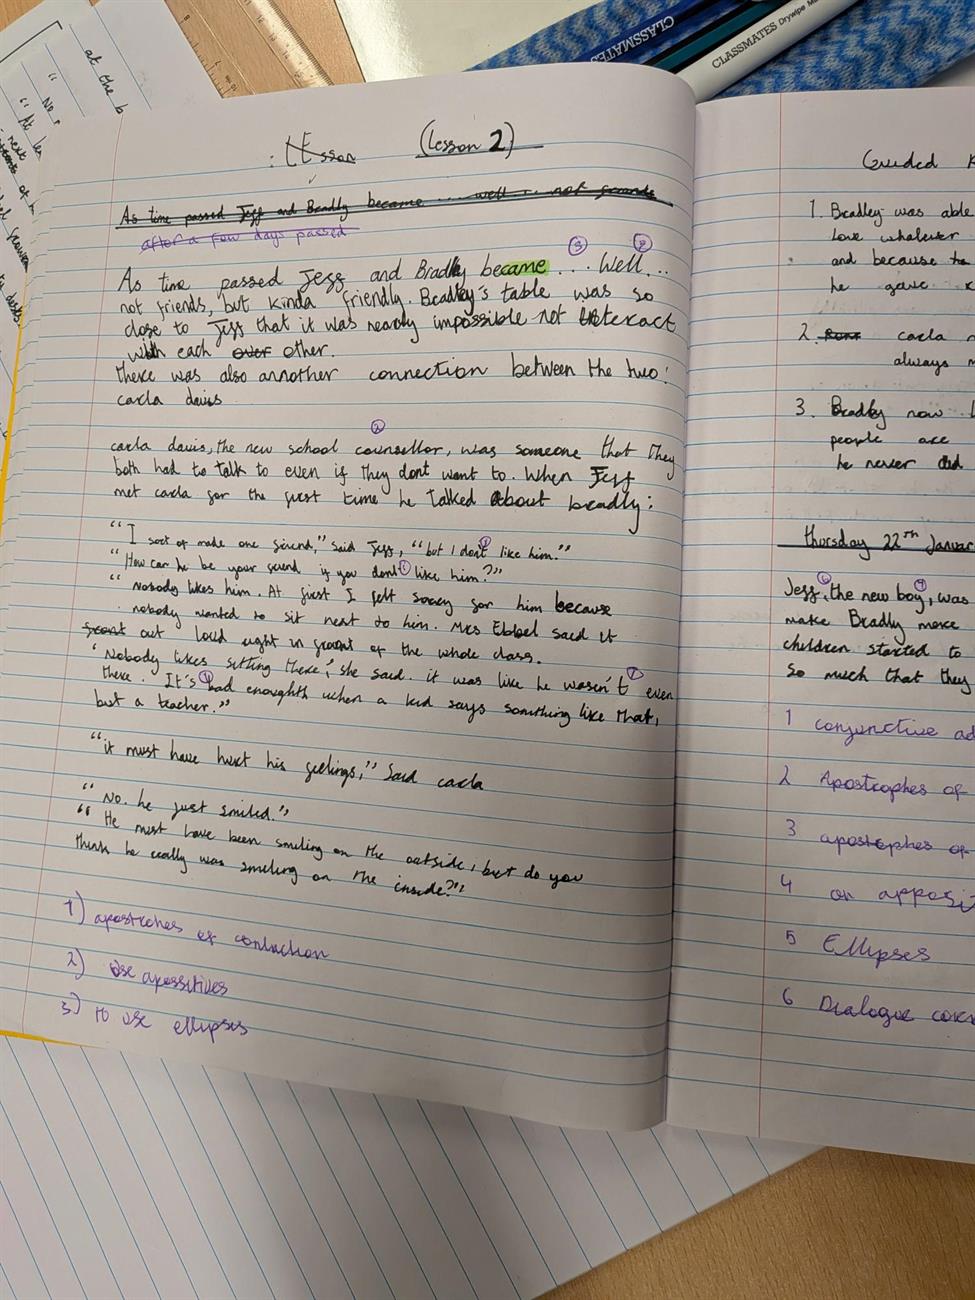 (lesson 2)
As time passed Jeff and Bradly became .... well ... not
after a few days passed
3 2
As time passed Jeff and Bradly became .... Well...
not friends, but kinda friendly. Bradley's table was so
close to Jeff that it was nearly impossible not interact
with each over other.
there was also annother connection between the two:
carla davis
2
carla davis, the new school counsellor, was someone that they
both had to talk to even if they dont want to. When Jeff
met carla for the first time he talked about bradly:
"I sort of made one friend," said Jeff, "but I don't like him."
"How can he be your friend if you don't like him?"
"Nobody likes him. At first I felt sorry for him because
nobody wanted to sit next to him. Mrs Ebbel said it
front out loud right in front of the whole class.
'Nobody likes sitting there', she said. it was like he wasn't even
there. It's bad enoughth when a kid says something like that,
but a teacher."
"it must have hurt his feelings," Said carla
"No. he just smiled."
"He must have been smiling on the outside, but do you
think he really was smeling on the inside?"
1) apostrohes of contraction
2) use apossitives
3) to use ellipsis
Guided
1. Bradley was able
Love whatever
and because to
he gave
2. carla
always
3. Bradley now
people are
he never did
thursday 22nd Januar
6 4
Jeff, the new boy, was
make Bradly more
children started to
so much that they
1 conjunctive ad
2 Apostrophes of
3 apostophes of
4 on apposit
5 Ellipses
6 Dialogue
CLASSMATES
CLASSMATES Drywipe
at the b
"No
"At
next